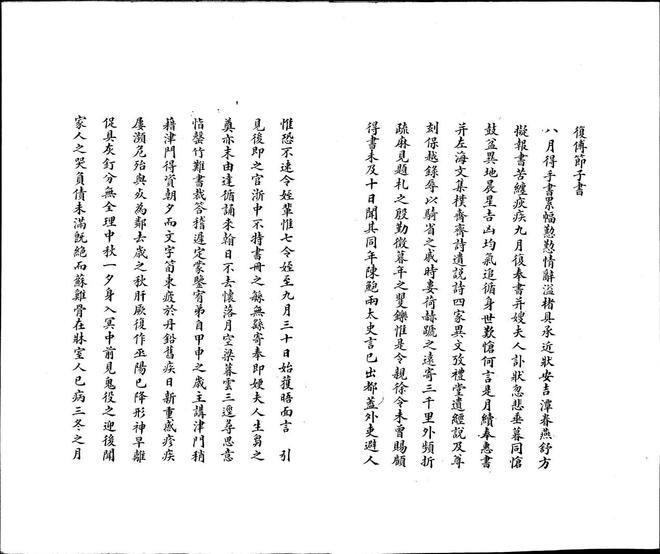 復傅節子書
八月得手書累幅懃懃情辭溢楮具承近狀安吉潭眷燕舒方
擬報書苦纏痎疾九月復奉書并嫂夫人訃狀忽悲垂暮同愴
鼓盆異地晨星吉凶均氣追循身世歎愴何言是月續奉惠書
并左海文集樸齋齋詩遺說詩四家異文攷禮堂遺經說及尊
刻保越錄辱以騎省之戚時婁荷赫蹏之遠寄三千里外頻折
疏麻見題札之殷勤徵暮年之矍鑠惟是令親徐令未曾賜頎
得書未及十日聞其同年陳鮑兩太史言已出都蓋外吏避人
惟恐不速令姪輩惟七令姪至九月三十日始獲晤面言 引
見後即之官浙中不持書冊之餘無繇寄奉即嫂夫人生芻之
奠亦未由達循誦來翰日不去懷落月空梁暮雲三邊尋思意
悁罄竹難書裁答稽遲定蒙鑒宥弟自甲申之歲主講津門稍
藉津門得資朝夕而文字笥束疲於丹鉛舊疾日新重感疹疾
屢瀕危殆與火為鄰去歲之秋肝厥復作巫陽已降形神早離
促具灰釘分無全理中秋一夕身入冥中前見鬼役之迎後聞
家人之哭負債未滿旣絕而蘇雞骨在牀室人已病三冬之月